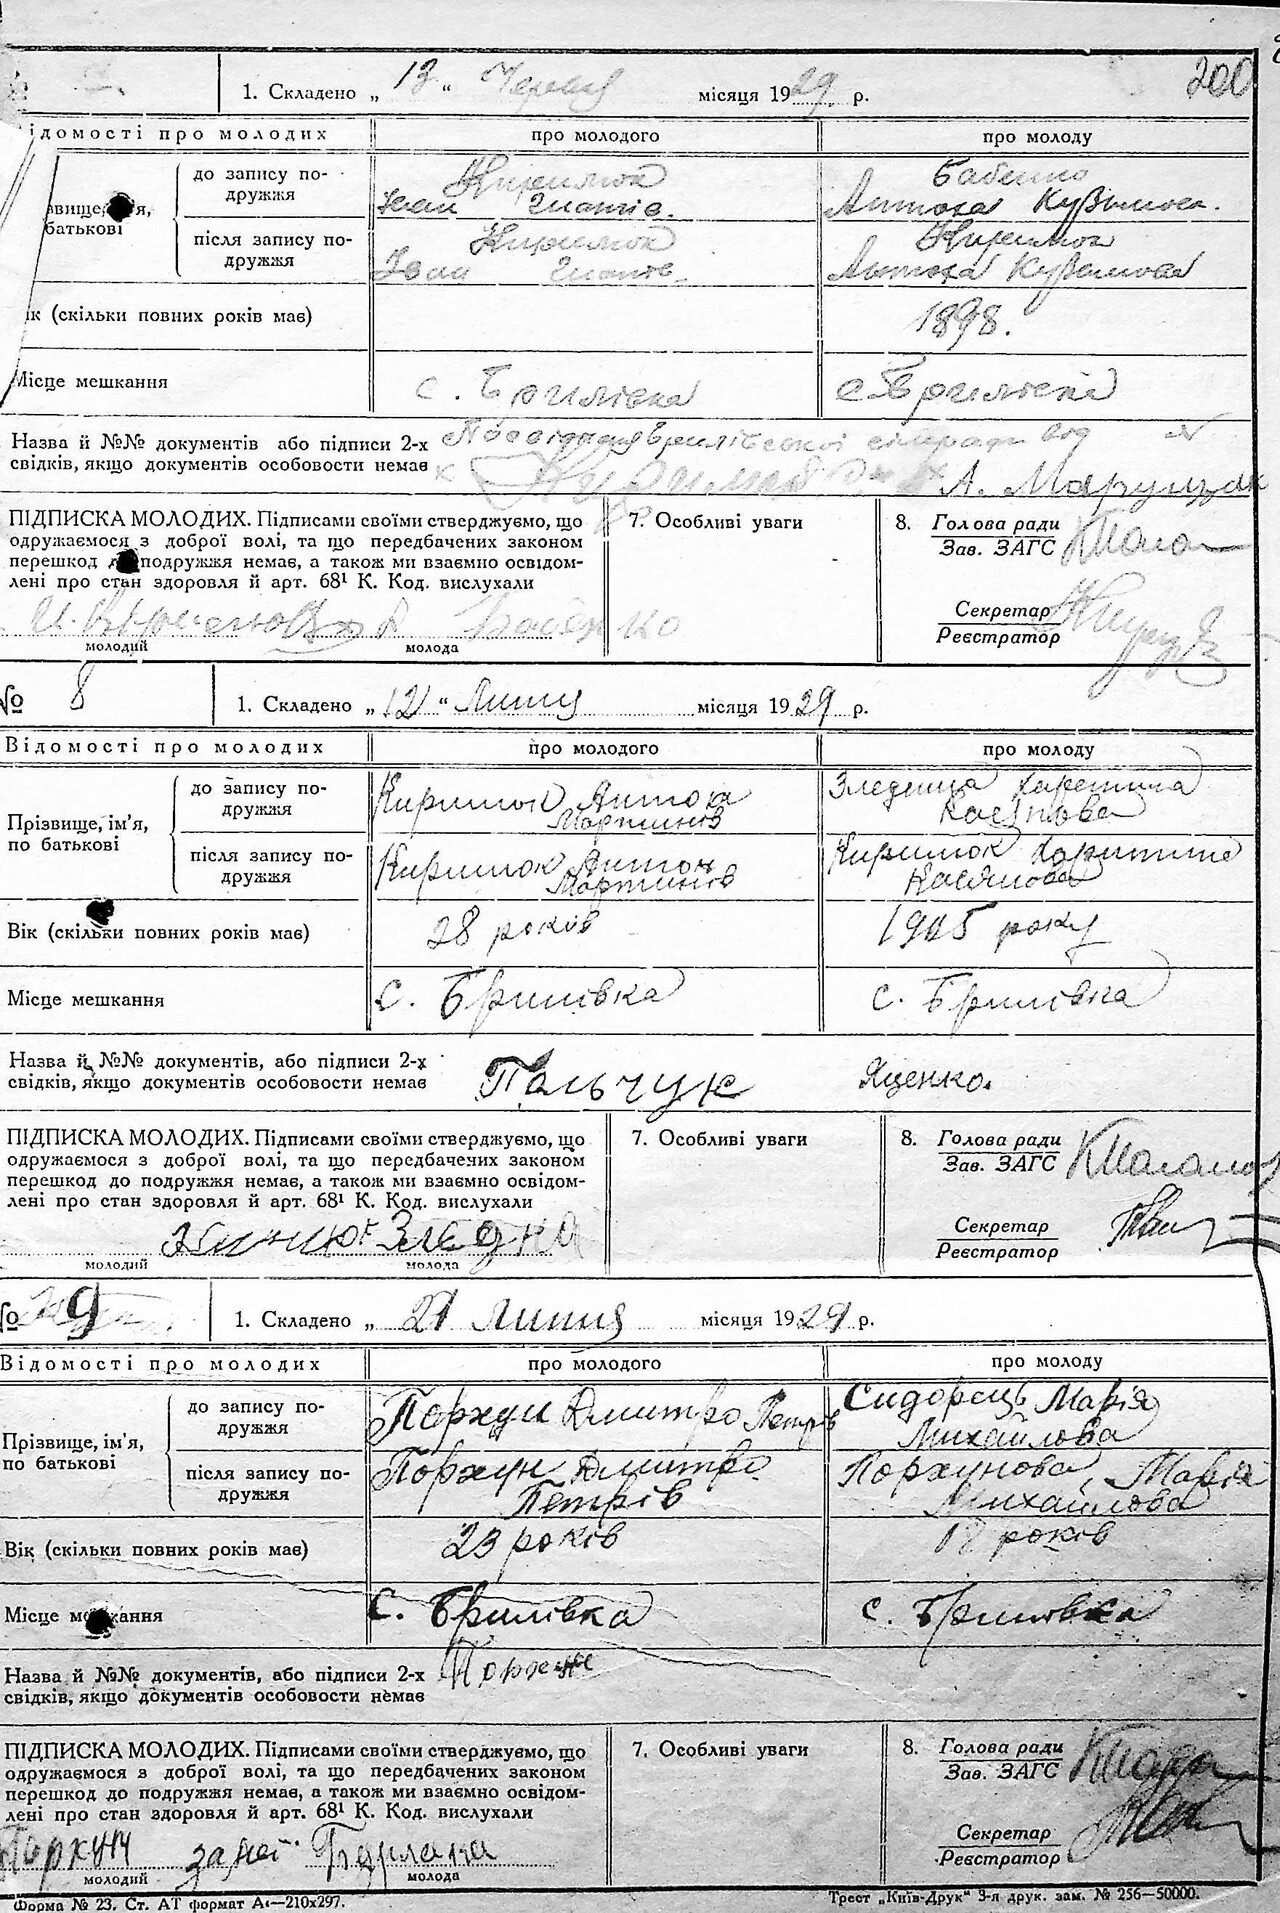 200
1. Складено „ 13 “ Червня місяця 1929 р.
ідомості про молодих про молодого про молоду
звище, я,
батькові
до запису по-
дружжя
Киримюк
Іван Гнатів.
Бабенко
Антоха Кузьмова.
після запису по-
дружжя
Киримюк
Іван Гнатів.
Киримюк
Антоха Кузьмова
ік (скільки повних років має) 1898.
Місце мешкання с. Брилівка с. Брилівка
Назва й №№ документів або підписи 2-х
свідків, якщо документів особовости немає
Посвідчення Брилівської сільради від
А.
ПІДПИСКА МОЛОДИХ. Підписами своїми стверджуємо, що
одружаємося з доброї волі, та що передбачених законом
перешкод до подружжя немає, а також ми взаємно освідом-
лені про стан здоров'я й арт. 68¹ К. Код. вислухали
Бабенко
молодий молода
7. Особливі уваги
8. Голова ради
Зав. ЗАГС
Секретар
Реєстратор
№ 8 1. Складено „ 12 “ Липця місяця 1929 р.
Відомості про молодих про молодого про молоду
Прізвище, ім'я,
по батькові
до запису по-
дружжя
Киримюк Антон
Мартинів
Харитина
Касянова
після запису по-
дружжя
Киримюк Антон
Мартинів
Киримюк Харитина
Касянова
Вік (скільки повних років має) 28 років 1905 року
Місце мешкання с. Брилівка с. Брилівка
Назва й №№ документів, або підписи 2-х
свідків, якщо документів особовости немає
Пальчук Яценко.
ПІДПИСКА МОЛОДИХ. Підписами своїми стверджуємо, що
одружаємося з доброї волі, та що передбачених законом
перешкод до подружжя немає, а також ми взаємно освідом-
лені про стан здоров'я й арт. 68¹ К. Код. вислухали
молодий молода
7. Особливі уваги
8. Голова ради
Зав. ЗАГС
Секретар
Реєстратор
№ 9 1. Складено „ 27 Липця місяця 1929 р.
Відомості про молодих про молодого про молоду
Прізвище, ім'я,
по батькові
до запису по-
дружжя
Порхун Дмитро Петрів
Сидорець Марія
Михайлова
після запису по-
дружжя
Порхун Дмитро
Петрів
Порхунова, Марія
Михайлова
Вік (скільки повних років має) 23 років 18 років
Місце мешкання с. Брилівка с. Брилівка
Назва й №№ документів, або підписи 2-х
свідків, якщо документів особовости немає
Порхун
ПІДПИСКА МОЛОДИХ. Підписами своїми стверджуємо, що
одружаємося з доброї волі, та що передбачених законом
перешкод до подружжя немає, а також ми взаємно освідом-
лені про стан здоров'я й арт. 68¹ К. Код. вислухали
Порхун за неї
молодий молода
7. Особливі уваги
8. Голова ради
Зав. ЗАГС
Секретар
Реєстратор
Форма № 23. Ст. АТ формат А4—210х297.
Трест „Київ-Друк“ 3-я друк. зам. № 256—50000.